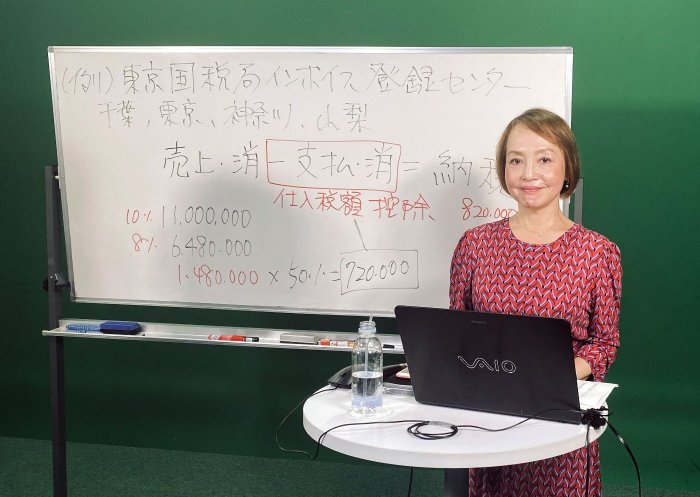 (例) 東京国税局インボイス登録センター
千葉、東京、神奈川、山梨
売上・消 - 支払・消 = 納税
仕入税額控除 820.000
10% 11,000,000
8% 6.480.000
1.480.000 × 50% = 720.000
SONY
VAIO